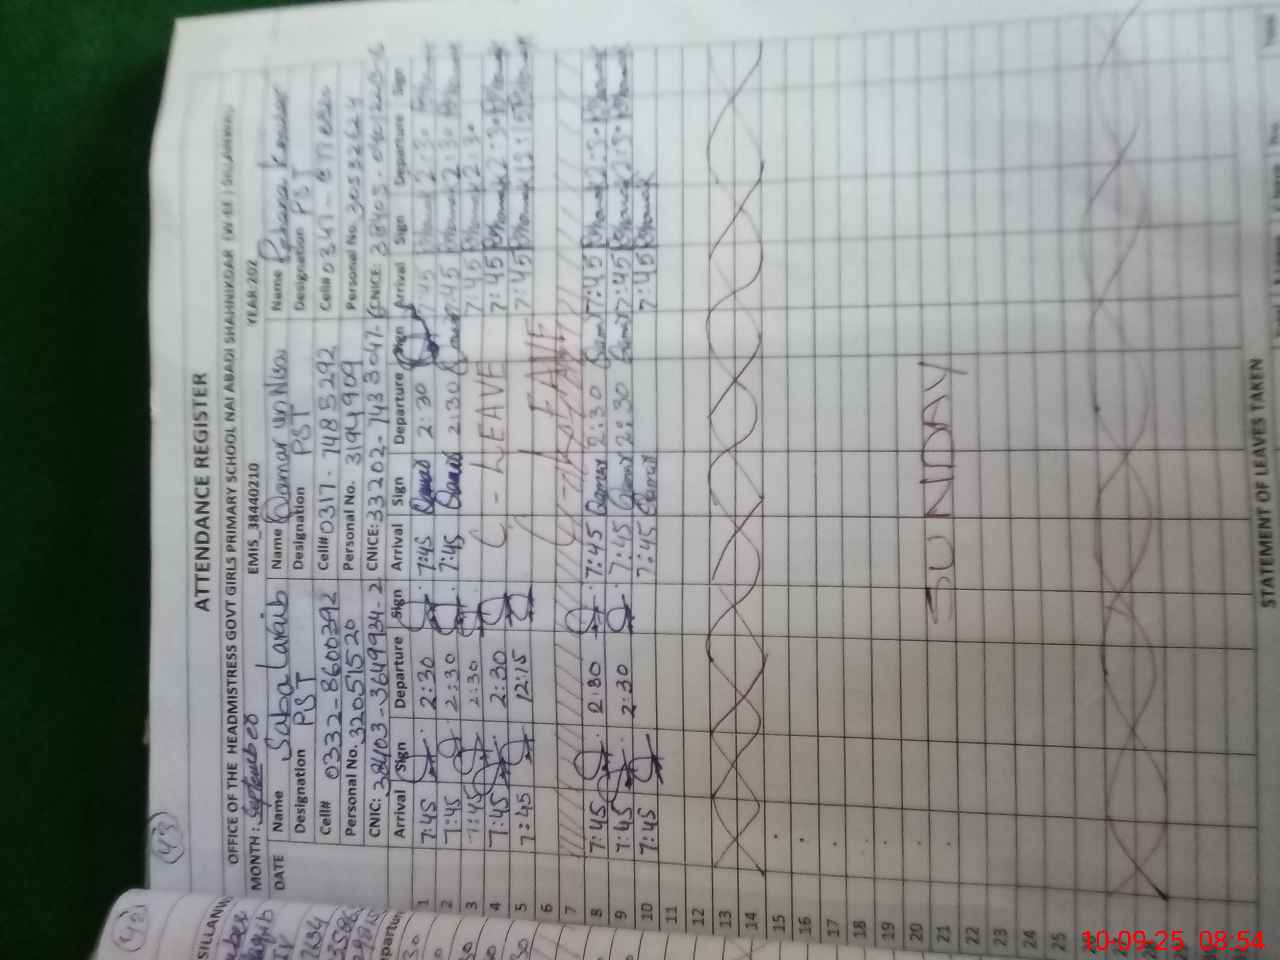 43
ATTENDANCE REGISTER
OFFICE OF THE HEADMISTRESS GOVT GIRLS PRIMARY SCHOOL NAI ABADI SHAHNIKDAR
MONTH: September EMIS_38440210 YEAR 202
DATE Name Saba Laraib Name Qamar un Nisa Name Rehana Kousar
Designation PST Designation PST Designation PST
Cell# 0332-8600292 Cell# 0317-7485292 Cell# 0347-
Personal No. 32051520 Personal No. 3194909 Personal No. 30533624
CNIC: 38403-3649934-2 CNICE: 33202-7433047-6 CNICE: 38403-
Arrival Sign Departure Sign Arrival Sign Departure Sign Arrival Sign Departure Sign
1 7:45 2:30 7:45 Qamar 2:30 7:45 2:30
2 7:45 2:30 7:45 Qamar 2:30 7:45 2:30
3 7:45 2:30 C-LEAVE 7:45 2:30
4 7:45 2:30 7:45 2:30
5 7:45 12:15 LEAVE 7:45 12:15
6
7
8 7:45 2:30 7:45 Qamar 2:30 Qamar 7:45 2:30
9 7:45 2:30 7:45 Qamar 2:30 Qamar 7:45 2:30
10 7:45 7:45 Qamar 7:45
11
12
13
14
15
16
17
18
19
20
21 SUNDAY
22
23
24
25
STATEMENT OF LEAVES TAKEN
42
SILLANW
10-09-25 08:54